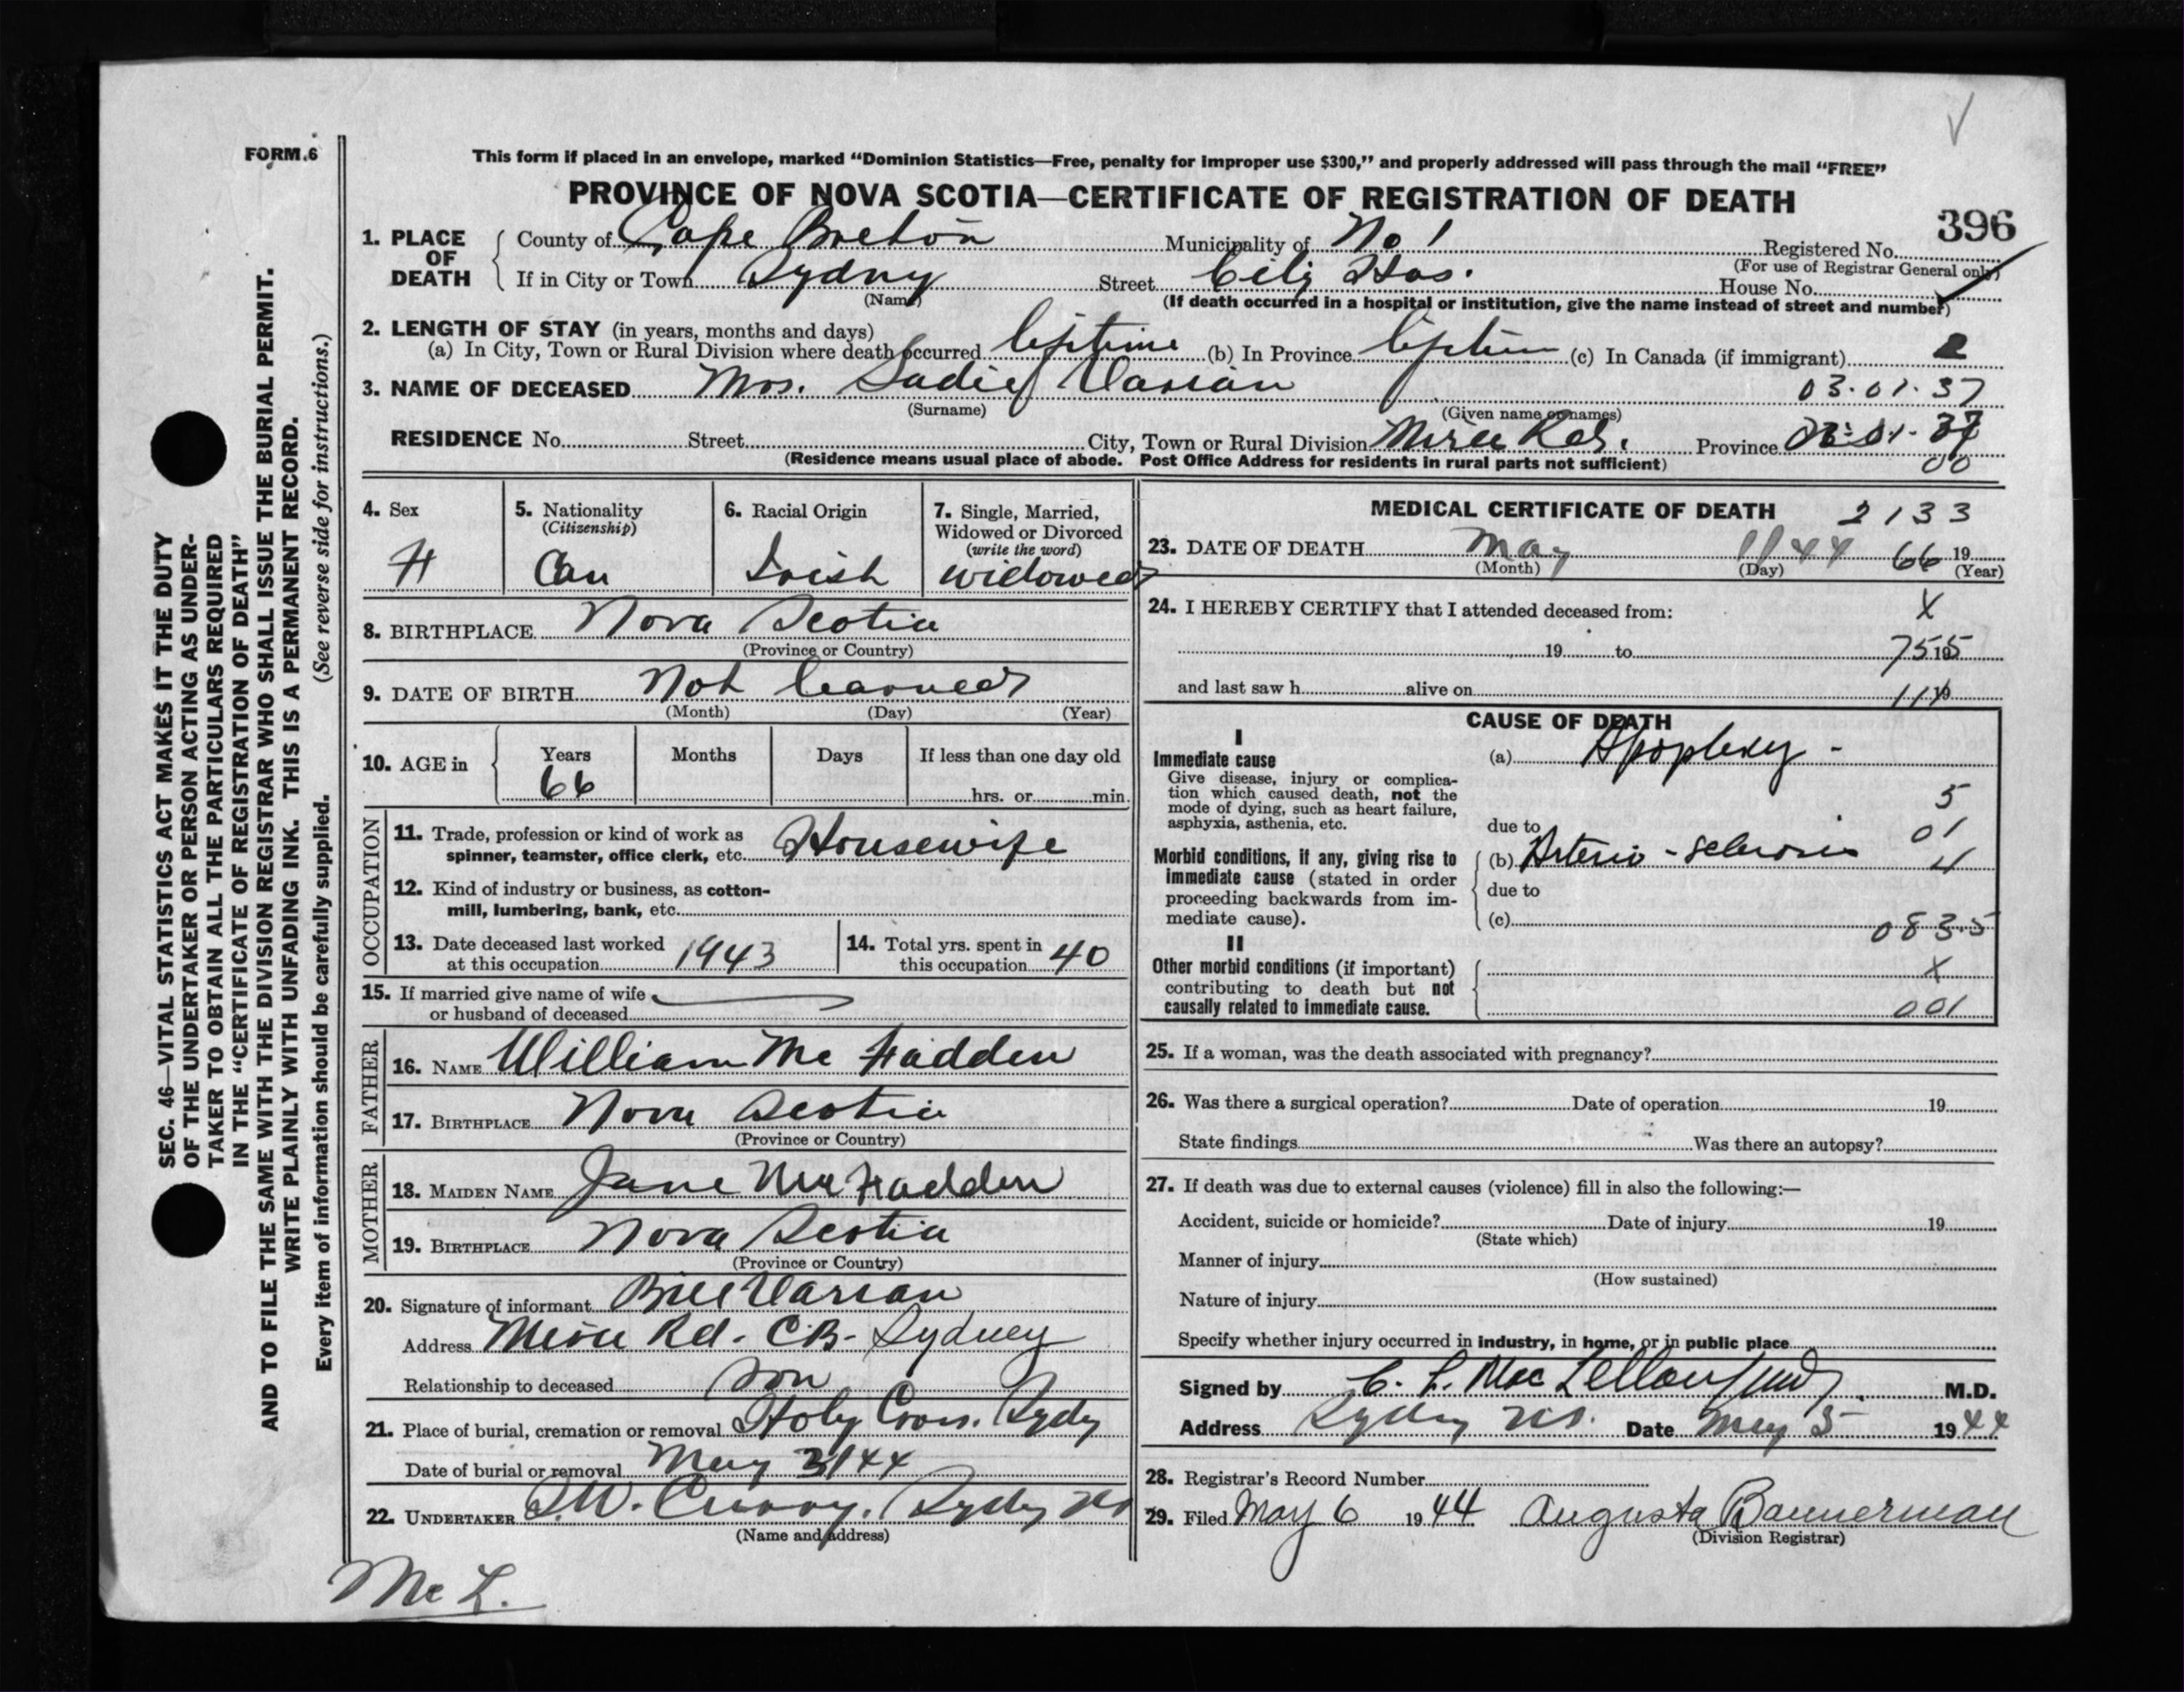 FORM.6
This form if placed in an envelope, marked “Dominion Statistics—Free, penalty for improper use $300,” and properly addressed will pass through the mail “FREE”
PROVINCE OF NOVA SCOTIA—CERTIFICATE OF REGISTRATION OF DEATH
396
1. PLACE OF DEATH
County of Cape Breton Municipality of No 1 Registered No.
(For use of Registrar General only)
If in City or Town Sydny Street City Hos. House No.
(Name) (If death occurred in a hospital or institution, give the name instead of street and number)
2. LENGTH OF STAY (in years, months and days)
(a) In City, Town or Rural Division where death occurred lifetime (b) In Province (c) In Canada (if immigrant) 2
3. NAME OF DECEASED Mrs. Sadie Varian 03·01·37
(Surname) (Given name or names)
RESIDENCE No. Street City, Town or Rural Division Province
(Residence means usual place of abode. Post Office Address for residents in rural parts not sufficient) 00
4. Sex
5. Nationality (Citizenship) Can
6. Racial Origin Irish
7. Single, Married, Widowed or Divorced (write the word) widowed
8. BIRTHPLACE Nova Scotia
(Province or Country)
9. DATE OF BIRTH Not learned
(Month) (Day) (Year)
10. AGE in Years 66 Months Days If less than one day old
hrs. or min.
OCCUPATION
11. Trade, profession or kind of work as spinner, teamster, office clerk, etc. Housewife
12. Kind of industry or business, as cotton-mill, lumbering, bank, etc.
13. Date deceased last worked at this occupation 1943
14. Total yrs. spent in this occupation 40
15. If married give name of wife or husband of deceased
FATHER
16. NAME William Mc Fadden
17. BIRTHPLACE Nova Scotia
(Province or Country)
MOTHER
18. MAIDEN NAME Jane McFadden
19. BIRTHPLACE Nova Scotia
(Province or Country)
20. Signature of informant Bill Varian
Address Rd. C.B. Sydney
Relationship to deceased son
21. Place of burial, cremation or removal Holy Cross. Sydy
Date of burial or removal May 3/44
22. UNDERTAKER Curry. Sydy NS
(Name and address)
Mc L.
MEDICAL CERTIFICATE OF DEATH 2133
23. DATE OF DEATH May 1/44 66 19
(Month) (Day) (Year)
24. I HEREBY CERTIFY that I attended deceased from: X
19 to 19 755
and last saw h alive on 19
CAUSE OF DEATH
I
Immediate cause
Give disease, injury or complication which caused death, not the mode of dying, such as heart failure, asphyxia, asthenia, etc.
(a) Apoplexy -
5
due to
01
Morbid conditions, if any, giving rise to immediate cause (stated in order proceeding backwards from immediate cause).
(b) Arterio-sclerosis 4
due to
(c) 083·5
II
Other morbid conditions (if important) contributing to death but not causally related to immediate cause.
X
001
25. If a woman, was the death associated with pregnancy?
26. Was there a surgical operation? Date of operation 19
State findings Was there an autopsy?
27. If death was due to external causes (violence) fill in also the following:—
Accident, suicide or homicide? Date of injury 19
(State which)
Manner of injury
(How sustained)
Nature of injury
Specify whether injury occurred in industry, in home, or in public place
Signed by C. L. MacLellan M.D.
Address Sydny NS. Date May 5 1944
28. Registrar's Record Number
29. Filed May 6 1944 Augusta Bannerman
(Division Registrar)
SEC. 46—VITAL STATISTICS ACT MAKES IT THE DUTY
OF THE UNDERTAKER OR PERSON ACTING AS UNDER-
TAKER TO OBTAIN ALL THE PARTICULARS REQUIRED
IN THE “CERTIFICATE OF REGISTRATION OF DEATH”
AND TO FILE THE SAME WITH THE DIVISION REGISTRAR WHO SHALL ISSUE THE BURIAL PERMIT.
WRITE PLAINLY WITH UNFADING INK. THIS IS A PERMANENT RECORD.
Every item of information should be carefully supplied. (See reverse side for instructions.)